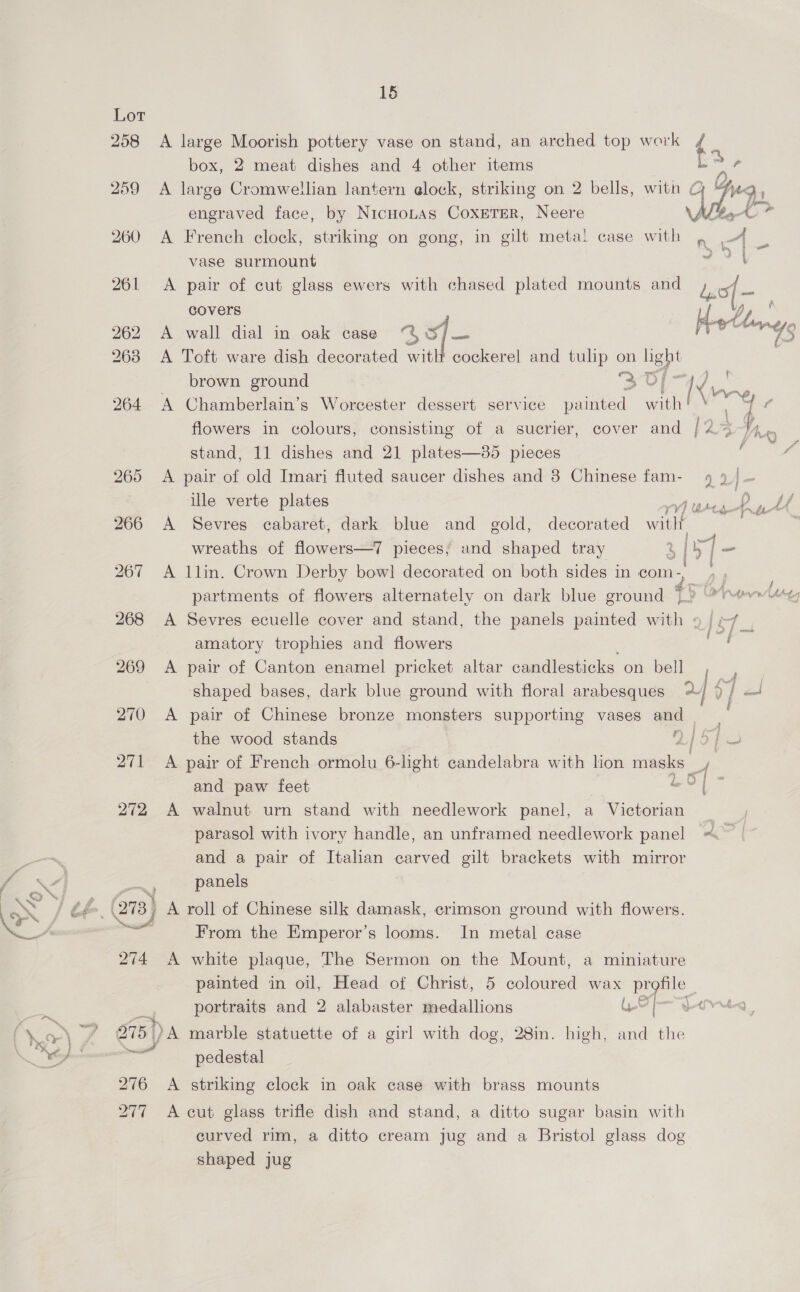 15
Lot
258 A large Moorish pottery vase on stand, an arched top work
box, 2 meat dishes and 4 other items
259 A large Cromwellian lantern clock, striking on 2 bells, with
engraved face, by Nicholas Coxeter, Neere
260 A French clock, striking on gong, in gilt metal case with
vase surmount
261 A pair of cut glass ewers with chased plated mounts and
covers
262 A wall dial in oak case
263 A Toft ware dish decorated with cockerel and tulip on light
brown ground
264 A Chamberlain's Worcester dessert service painted with
flowers in colours, consisting of a sucrier, cover and
stand, 11 dishes and 21 plates—35 pieces
265 A pair of old Imari fluted saucer dishes and 3 Chinese fam-
ille verte plates
266 A Sevres cabaret, dark blue and gold, decorated with
wreaths of flowers—7 pieces, and shaped tray
267 A 11in. Crown Derby bowl decorated on both sides in com-
partments of flowers alternately on dark blue ground
268 A Sevres ecuelle cover and stand, the panels painted with
amatory trophies and flowers
269 A pair of Canton enamel pricket altar candlesticks on bell
shaped bases, dark blue ground with floral arabesques
270 A pair of Chinese bronze monsters supporting vases and
the wood stands
271 A pair of French ormolu 6-light candelabra with lion masks
and paw feet
272 A walnut urn stand with needlework panel, a Victorian
parasol with ivory handle, an unframed needlework panel
and a pair of Italian carved gilt brackets with mirror
panels
273 A roll of Chinese silk damask, crimson ground with flowers.
From the Emperor's looms. In metal case
274 A white plaque, The Sermon on the Mount, a miniature
painted in oil, Head of Christ, 5 coloured wax profile
portraits and 2 alabaster medallions
275 A marble statuette of a girl with dog, 28in. high, and the
pedestal
276 A striking clock in oak case with brass mounts
277 A cut glass trifle dish and stand, a ditto sugar basin with
curved rim, a ditto cream jug and a Bristol glass dog
shaped jug